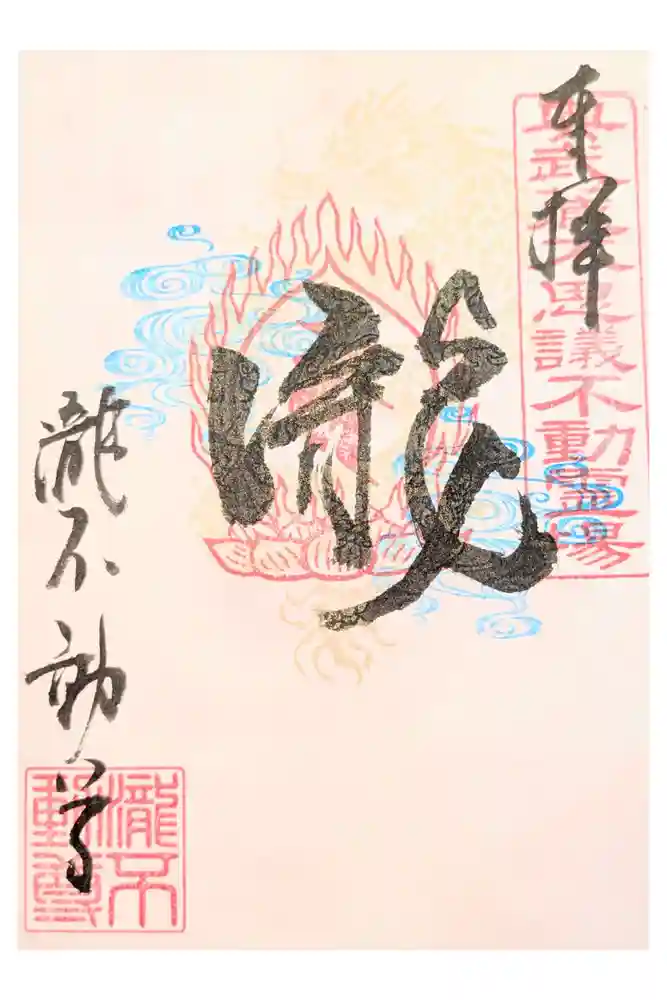 奉拝
武蔵不思議不動霊場
瀧
瀧不動尊
瀧不動尊